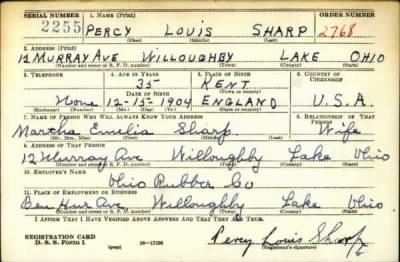 SERIAL NUMBER 1. NAME (Print) ORDER NUMBER
2255 PERCY LOUIS SHARP 2768
(First) (Middle) (Last)
2. ADDRESS (Print)
12 MURRAY AVE WILLOUGHBY LAKE OHIO
(Number and street or R. F. D. number) (Town) (County) (State)
3. TELEPHONE 4. AGE IN YEARS 5. PLACE OF BIRTH 6. COUNTRY OF CITIZENSHIP
35 KENT
DATE OF BIRTH (Town or county)
None 12-15-1904 ENGLAND U.S.A.
(Exchange) (Number) (Mo.) (Day) (Yr.) (State or country)
7. NAME OF PERSON WHO WILL ALWAYS KNOW YOUR ADDRESS 8. RELATIONSHIP OF THAT PERSON
Martha Emelia Sharp Wife
(Mr., Mrs., Miss) (First) (Middle) (Last)
9. ADDRESS OF THAT PERSON
12 Murray Ave Willoughby Lake Ohio
(Number and street or R. F. D. number) (Town) (County) (State)
10. EMPLOYER'S NAME
Ohio Rubber Co
11. PLACE OF EMPLOYMENT OR BUSINESS
Ben Hur Ave Willoughby Lake Ohio.
(Number and street or R. F. D. number) (Town) (County) (State)
I AFFIRM THAT I HAVE VERIFIED ABOVE ANSWERS AND THAT THEY ARE TRUE.
REGISTRATION CARD
D. S. S. Form 1 (over) 16-17105 Percy Louis Sharp